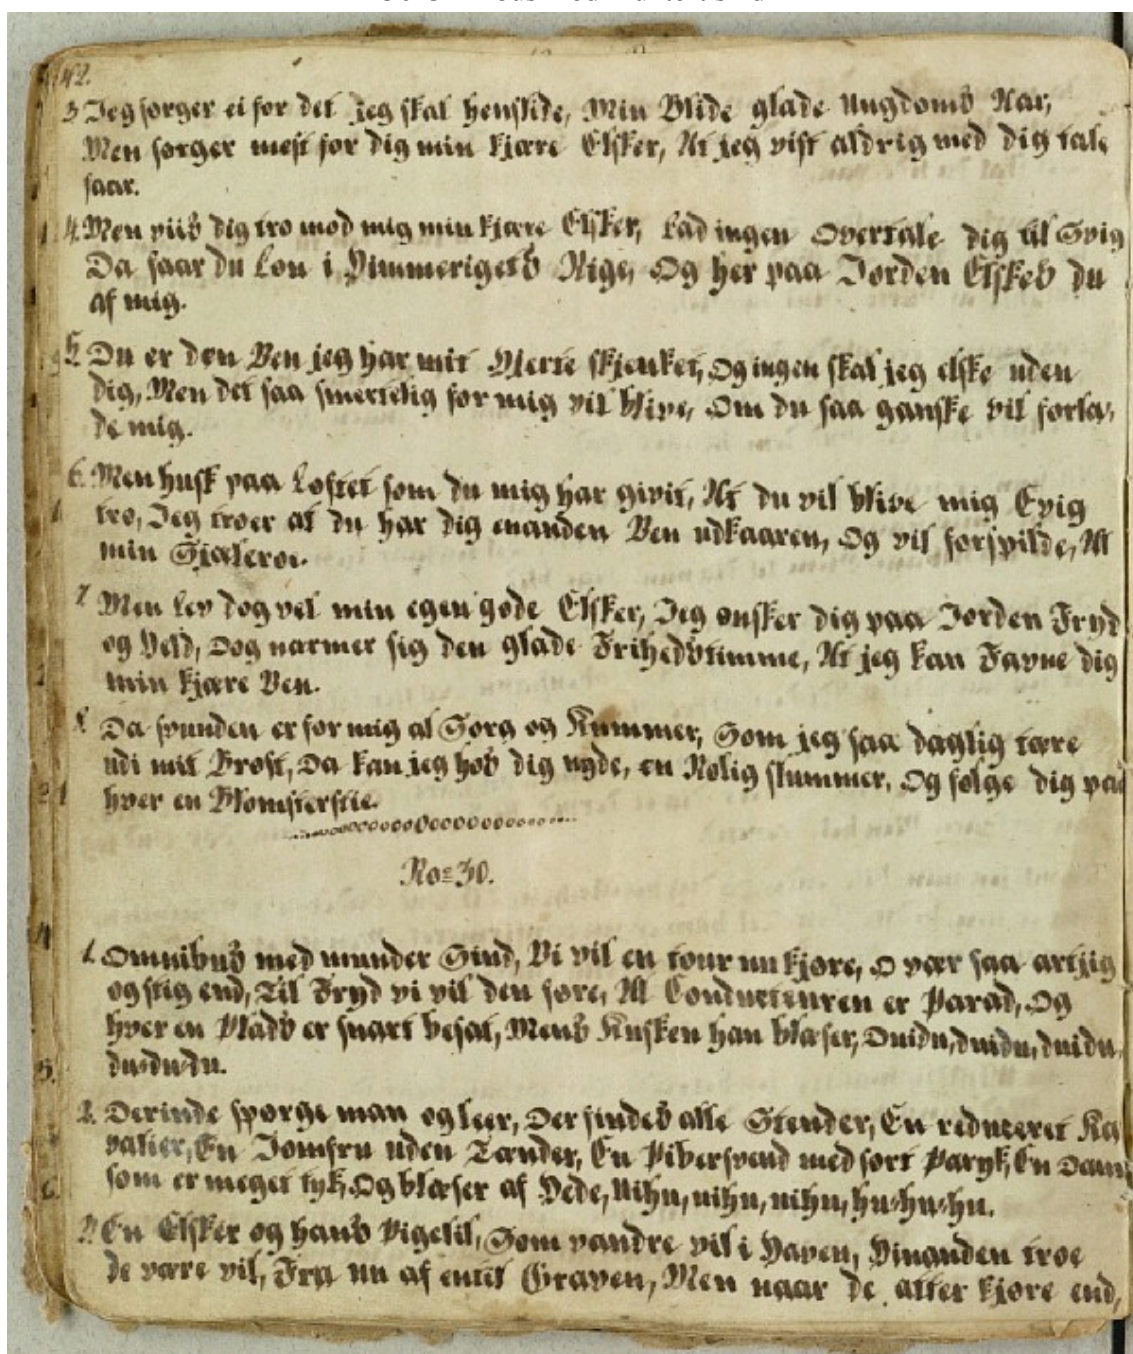 42.
3 Jeg sørger ei for det jeg skal henslide, Min Blide glade Ungdoms Aar,
Men sørger mest for dig min kjære Elsker, At jeg vist aldrig med dig tale
faar.
4. Men viis dig tro mod mig min kjære Elsker, Lad ingen Overtale dig til Svig
Da faar du Løn i Himmerigets Rige, Og her paa Jorden Elskes du
af mig.
5. Du er den Ven jeg har mit Hjerte skjenket, Og ingen skal jeg elske uden
dig, Men det saa smertelig for mig vil blive, Om du saa ganske vil forla,
de mig.
6. Men husk paa Løftet som du mig har givit, At du vil blive mig Evig
tro, Jeg troer at du har dig enanden Ven udkaaren, Og vil forspilde, Al
min Sjælero.
7 Men lev dog vel min egen gode Elsker, Jeg ønsker dig paa Jorden Fryd
og Held, Dog nærmer sig den glade Frihedstimme, At jeg kan Favne dig
min kjære Ven.
8. Da svunden er for mig al Sorg og Kummer, Som jeg saa daglig tære
udi mit Brøst, Da kan jeg hos dig nyde, en Rolig slummer, Og følge dig paa
hver en Blomsterstie.
No 30.
1. Omnibus med munder Sind, Vi vil en tour nu kjøre, O vær saa artjig
og stig end, Til Fryd vi vil den føre, Al Conducteuren er Parad, Og
hver en Plads er snart besat, Mens Kusken han blæser, Duidu, duidu, duidu,
du-du-du.
2. Derinde spørge man og leer, Der findes alle Stender, En reduceret Ka
valier, En Jomfru uden Tænder, En Pibersvend med sort Paryk, En Dame
som er meget tyk, Og blæser af Hede, Uihu, uihu, uihu, hu-hu-hu.
3. En Elsker og hans Pigelil, Som vandre vil i Haven, Hinanden troe
de være vil, Fra nu af entil Graven, Men naar de atter kjøre end,